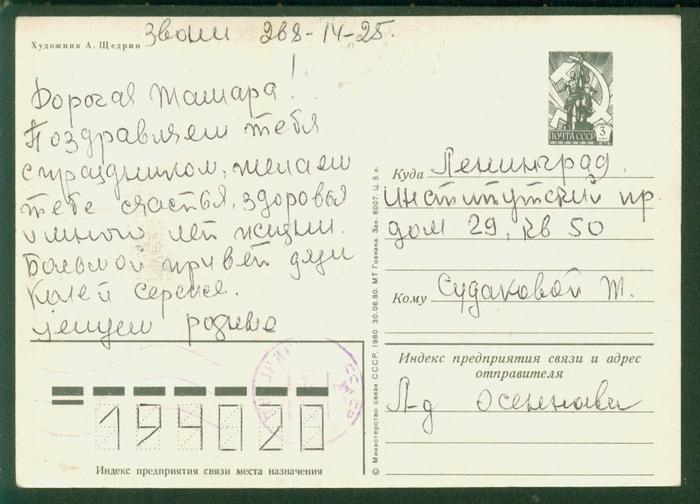 Художник А. Щедрин
Звони 288-14-25.
Дорогая Тамара!
Поздравляем тебя
с праздником, желаем
тебе счастья, здоровья
и много лет жизни.
Большой привет дяди
Колей Сереже.
целуем
ПОЧТА СССР
3
Куда Ленинград.
Институтский пр.
дом 29. кв 50
Кому Судаковой Т.
Индекс предприятия связи и адрес
отправителя
Л-д
194020
Индекс предприятия связи места назначения
© Министерство связи СССР, 1980 30.06.80. МТ Гознака. Зак. 6007. Ц. 5 к.